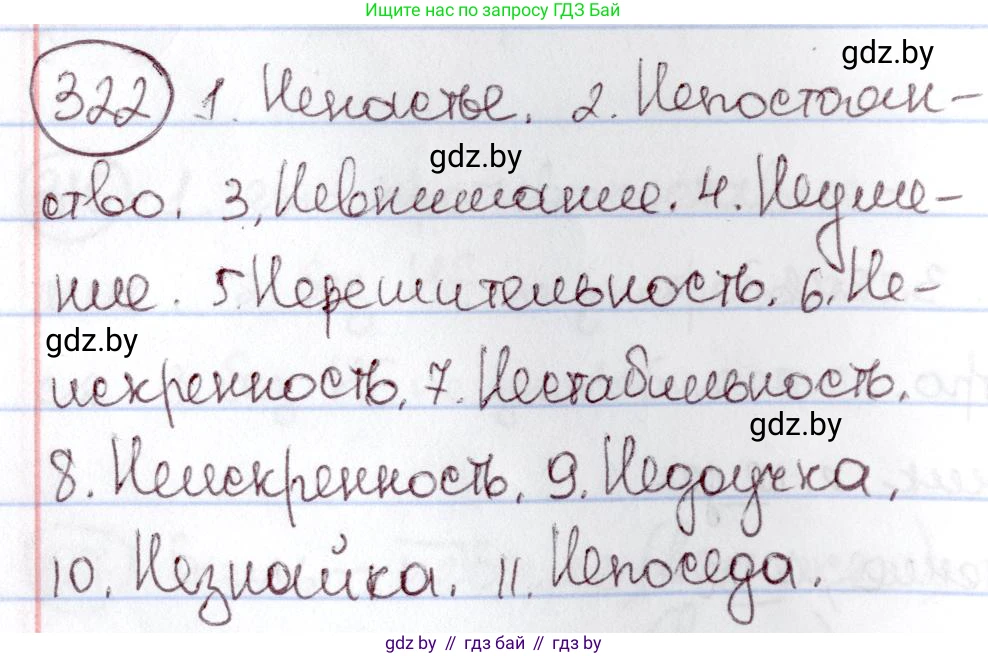 Ищите нас по запросу ГДЗ Бай
gdz.by
322 1. Ненастье. 2. Непостоян-
gdz.by
ство. 3. Невнимание. 4. Неуме-
ние. 5. Нерешительность. 6. Не-
gdz.by
искренность. 7. Нестабильность.
gdz.by
8. Неискренность. 9. Недоучка.
10. Незнайка. 11. Непоседа.
gdz.by // гдз бай // гдз by